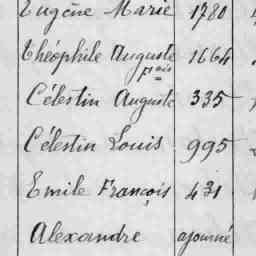 Eugène Marie 1780
Théophile Auguste 1664
fçois
Célestin Auguste 335
Célestin Louis 995
Emile François 431
Alexandre ajourné